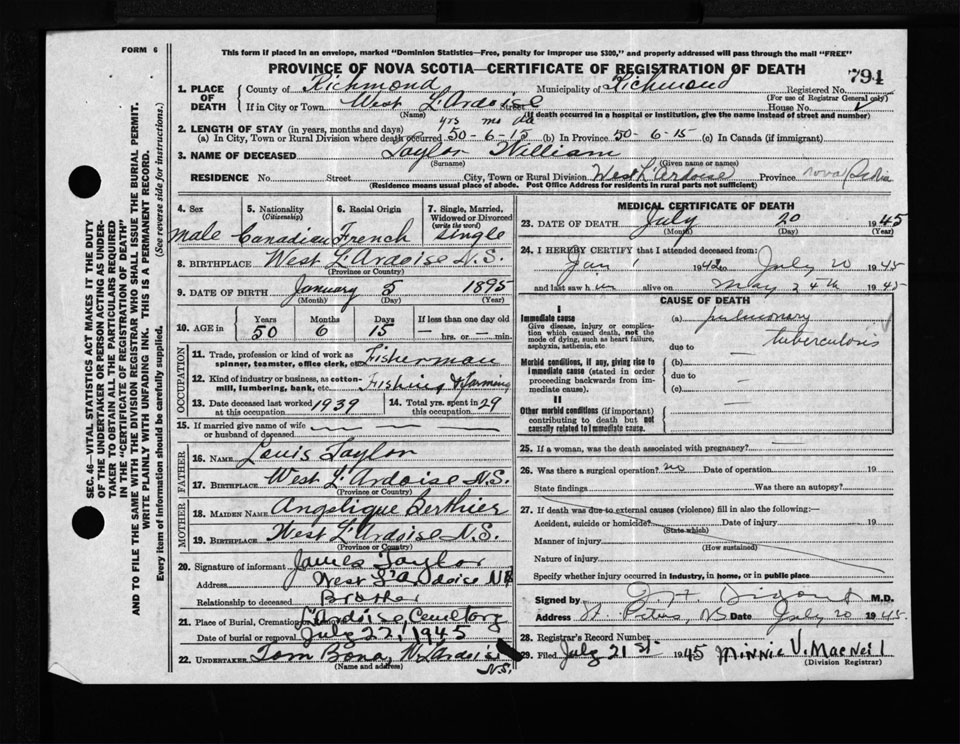 FORM 6
This form if placed in an envelope, marked "Dominion Statistics—Free, penalty for improper use $300," and properly addressed will pass through the mail "FREE"
PROVINCE OF NOVA SCOTIA—CERTIFICATE OF REGISTRATION OF DEATH
794
1. PLACE OF DEATH
County of Richmond Municipality of Richmond Registered No.
(For use of Registrar General only)
If in City or Town West L'Ardoise Street House No.
(Name) (If death occurred in a hospital or institution, give the name instead of street and number)
yrs mo da
2. LENGTH OF STAY (in years, months and days)
(a) In City, Town or Rural Division where death occurred 50-6-15 (b) In Province 50-6-15 (c) In Canada (if immigrant)
3. NAME OF DECEASED Taylor William
(Surname) (Given name or names)
RESIDENCE No. Street City, Town or Rural Division West L'Ardoise Province Nova Scotia
(Residence means usual place of abode. Post Office Address for residents in rural parts not sufficient)
4. Sex 5. Nationality (Citizenship) 6. Racial Origin 7. Single, Married, Widowed or Divorced (write the word)
male Canadian French single
8. BIRTHPLACE West L'Ardoise N.S.
(Province or Country)
9. DATE OF BIRTH January 5 1895
(Month) (Day) (Year)
10. AGE in Years Months Days If less than one day old
50 6 15 — hrs. or — min.
OCCUPATION
11. Trade, profession or kind of work as spinner, teamster, office clerk, etc. Fisherman
12. Kind of industry or business, as cotton-mill, lumbering, bank, etc. Fishing & Farming
13. Date deceased last worked at this occupation 1939 14. Total yrs. spent in this occupation 29
15. If married give name of wife or husband of deceased
FATHER
16. Name Louis Taylor
17. Birthplace West L'Ardoise N.S.
(Province or Country)
MOTHER
18. MAIDEN NAME Angelique Berthier
19. BIRTHPLACE West L'Ardoise N.S.
(Province or Country)
20. Signature of informant James Taylor
Address West L'Ardoise NS
Relationship to deceased Brother
21. Place of Burial, Cremation L'Ardoise Cemetery
Date of burial or removal July 22, 1945
22. UNDERTAKER Tom Bona, W. L'Ardoise
N.S.
(Name and address)
MEDICAL CERTIFICATE OF DEATH
23. DATE OF DEATH July 20 1945
(Month) (Day) (Year)
24. I HEREBY CERTIFY that I attended deceased from:
Jan 1 1942 to July 20 1945
and last saw him alive on May 24th 1945
CAUSE OF DEATH
I
Immediate cause (a) pulmonary
Give disease, injury or complication which caused death, not the mode of dying, such as heart failure, asphyxia, asthenia, etc.
tuberculosis
due to —
Morbid conditions, if any, giving rise to immediate cause (stated in order proceeding backwards from immediate cause).
(b) —
due to —
(c) —
II
Other morbid conditions (if important) contributing to death but not causally related to immediate cause.
25. If a woman, was the death associated with pregnancy? —
26. Was there a surgical operation? no Date of operation 19
State findings Was there an autopsy?
27. If death was due to external causes (violence) fill in also the following:
Accident, suicide or homicide? Date of injury 19
(State which)
Manner of injury
(How sustained)
Nature of injury
Specify whether injury occurred in industry, in home, or in public place
Signed by M.D.
Address St. Peters, NS Date July 20 1945
28. Registrar's Record Number
29. Filed July 21st 1945 Minnie V. MacNeil
(Division Registrar)
SEC. 46—VITAL STATISTICS ACT MAKES IT THE DUTY
OF THE UNDERTAKER OR PERSON ACTING AS UNDER-
TAKER TO OBTAIN ALL THE PARTICULARS REQUIRED
IN THE "CERTIFICATE OF REGISTRATION OF DEATH"
AND TO FILE THE SAME WITH THE DIVISION REGISTRAR WHO SHALL ISSUE THE BURIAL PERMIT.
WRITE PLAINLY WITH UNFADING INK. THIS IS A PERMANENT RECORD.
Every item of information should be carefully supplied. (See reverse side for instructions.)